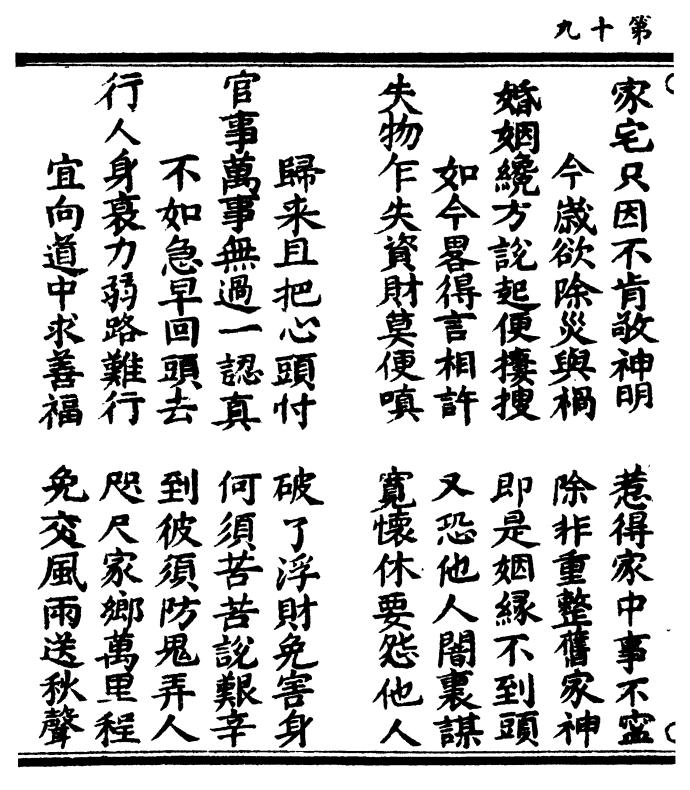 第十九
家宅只因不肯敬神明 惹得家中事不寧
今歲欲除災與禍 除非重整舊家神
婚姻纔方說起便摟搜 即是姻緣不到頭
如今畧得言相許 又恐他人闇裏謀
失物乍失資財莫便嗔 寬懷休要怨他人
歸来且把心頭忖 破了浮財免害身
官事萬事無過一認真 何須苦苦說艱辛
不如急早回頭去 到彼須防鬼弄人
行人身衰力弱路難行 咫尺家鄉萬里程
宜向道中求善福 免交風雨送秋聲